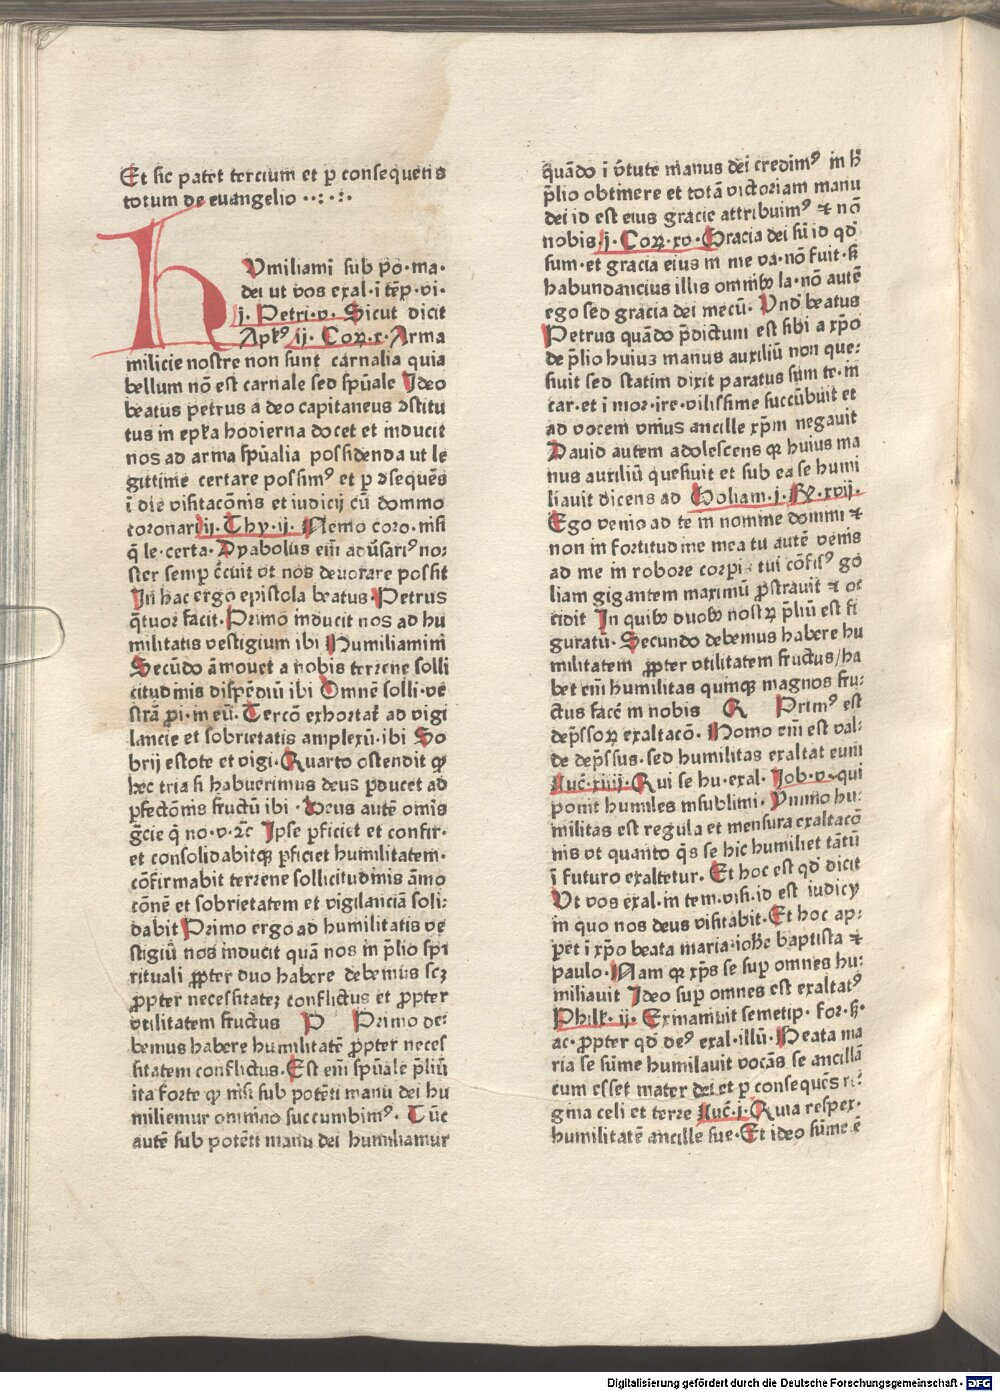 Et sic patet tercium et ꝑ consequens
totum de euangelio ··:·:·
HVmiliamī sub po·ma·
dei ut vos exal·ī tēp·vi·
j· Petri·v· Sicut dicit
Apꝉꝰ ij· Coꝝ·x· Arma
milicie nostre non sunt carnalia quia
bellum nō est carnale sed spūale Ideo
beatus petrus a deo capitaneus ↄstitu
tus in epꝉa hodierna docet et inducit
nos ad arma spūalia possidenda ut le
gittime certare possimꝰ et ꝑ ↄsequēs
ī die visitacōnis et iudicij cū domino
coronari ij· Thy·ij· Nemo coro·nisi
q̄ le·certa· Dyabolus eīn aduˢariꝰ no:
ster semꝑ c̄cuit vt nos deuorare possit
In hac ergo epistola beatus Petrus
q̄tuor facit· Primo inducit nos ad hu
militatis vestigium ibi Humiliamini
Secūdo āmouet a nobis terrene solli
citudinis dispēdiū ibi Omnē solli·ve
strā ꝓi·in eū· Tercō exhortaꝉ ad vigi
lancie et sobrietatis amplexū·ibi So
brij estote et vigi· Quarto ostendit ꝙ
hec tria si habuerimus deus ꝓducet ad
ꝑfectōnis fructū ibi ·Deus autē omīs
gr̄cie q̄ no·v·ꝛc̄ Ipse ꝑficiet et confir·
et consolidabitqꝫ ꝑficiet humilitatem·
cōfirmabit terrene sollicitudinis āmo
cōnē et sobrietatem et vigilanciā soli:
dabit Primo ergo ad humilitatis ve
stigiū nos inducit quā nos in p̄lio spi
rituali ꝓpter duo habere debemus scꝫ
ꝓpter necessitateꝫ conflictus et ꝓpter
vtilitatem fructus P Primo de:
bemus habere humilitatē ꝓpter neces
sitatem conflictus· Est eīn spūale p̄liū
ita forte ꝙ nisi sub potēti manu dei hu
miliemur omnīno succumbimꝰ· Tūc
autē sub potēti manu dei humiliamur
quādo ī v̄tute manus dei credimꝰ in h̄
p̄lio obtinere et totā victoriam manu
dei id est eius gracie attribuimꝰ ⁊ nō
nobis·j· Coꝝ·xv· Gracia dei sū id qđ
sum·et gracia eius in me va·nō fuit·ꝭ
habundancius illis omnibꝰ la·nō autē
ego sed gracia dei mecū· Vnd̄ beatus
Petrus quādo p̄dictum est sibi a xp̄o
de p̄lio huius manus auxiliū non que:
siuit sed statim dixit paratus sum te·in
car·et ī mor·ire·vilissime succūbuit et
ad vocem vnius ancille xp̄m negauit
Dauid autem adolescens ꝙ huius ma
nus auxiliū quesiuit et sub ea se humi
liauit dicens ad Goliam·j· Rꝭ·xvij·
Ego venio ad te in nomine domini ⁊
non in fortitudine mea tu autē venis
ad me in robore corpis tui cōfisꝰ go
liam gigantem maximū ꝓstrauit ⁊ oc
cidit In quibꝰ duobꝰ nostꝝ p̄liū est fi
guratū· Secundo debemus habere hu
militatem ꝓpter vtilitatem fructus/ha
bet eīn humilitas quinqꝫ magnos fru:
ctus facē in nobis R Primꝰ est
dep̄ssoꝝ exaltacō· Homo eīn est val:
de dep̄ssus·sed humilitas exaltat eum
Luc̄·xiiij· Qui se hu·exal· Job·v·qui
ponit humiles insublimi· Ymmo hu:
militas est regula et mensura exaltacō
nis vt quanto q̄s se hic humiliet tātū
ī futuro exaltetur· Et hoc est qđ dicit
Vt vos exal·in tem·visi·id est iudicij
in quo nos deus visitabit· Et hoc ap:
pet ī xp̄o beata maria·ioh̄e baptista ⁊
paulo· Nam ꝙ xp̄s se suꝑ omnes hu:
miliauit Ideo suꝑ omnes est exaltatꝰ
Philꝭ·ij· Exinaniuit semetip·for·ꝭ·
ac·ꝓpter qđ deꝰ exal·illū· Beata ma
ria se sūme humilauit vocās se ancillā
cum esset mater dei et ꝑ consequēs re:
gina celi et terre Luc̄·j· Quia respex·
humilitatē ancille sue· Et ideo sūme ē
Digitalisierung gefördert durch die Deutsche Forschungsgemeinschaft · DFG